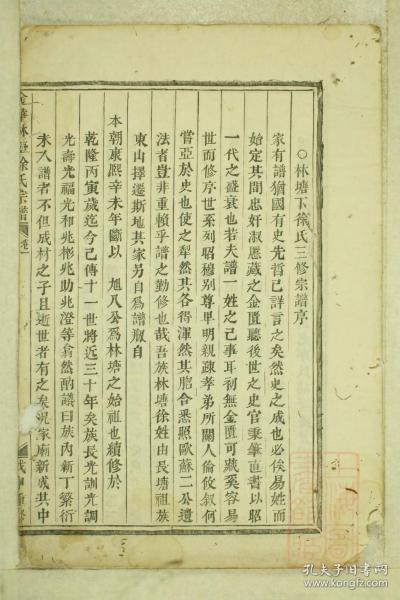 ○林塘下徐氏三修宗譜序
家有譜猶國有史先哲已詳言之矣然史之成也必俟易姓而
始定其間忠奸淑慝藏之金匱聽後世之史官秉筆直書以昭
一代之盛衰也若夫譜一姓之己事耳初無金匱可藏奚容易
世而修序世系列昭穆別尊卑明親疎孝弟所關人倫攸叙何
嘗亞於史也使之犁然其各得渾然其脗合悉照歐蘇二公遺
法者豈非重賴乎譜之勤修也哉吾族林塘徐姓由長塘祖族
東山擇遷斯地其家另自爲譜溯自
本朝康熙辛未年斷以 旭八公爲林塘之始祖也續修於
乾隆丙寅歲迄今已傳十一世將近三十年矣族長光訓光調
光壽光福光和兆彬兆助兆澄等翕然酌議曰族內新丁繁衍
未入譜者不但成材之子且逝世者有之矣況家廟新成其中
林塘徐氏宗譜
戊申重修
孔夫子旧书网
www.kongfz.com